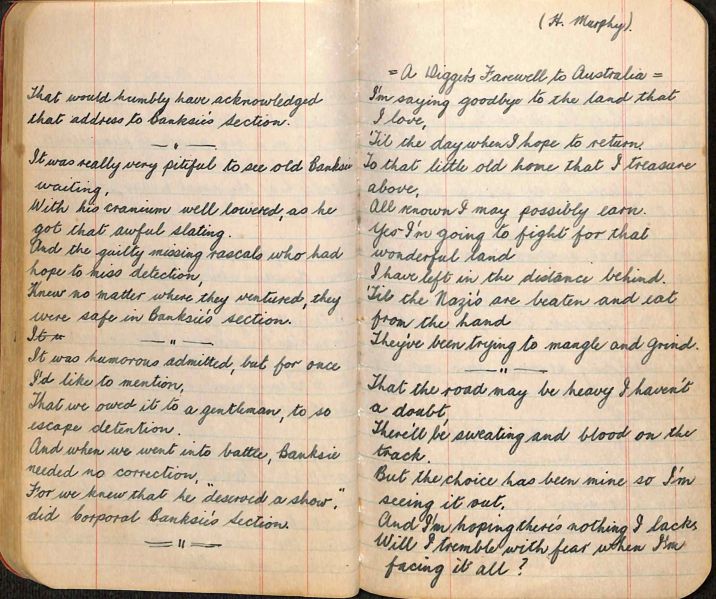 That would humbly have acknowledged
that address to Banksie's Section.
It was really very pitiful to see old Banksie
waiting,
With his cranium well lowered, as he
got that awful slating.
And the guilty missing rascals who had
hope to miss detection,
Knew no matter where they ventured, they
were safe in Banksie's section.
It
It was humorous admitted, but for once
I'd like to mention,
That we owed it to a gentleman, to so
escape detention.
And when we went into battle, Banksie
needed no correction,
For we knew that he "deserved a show",
did Corporal Banksie's Section.
(H. Murphy).
= A Digger's Farewell to Australia =
I'm saying goodbye to the land that
I love,
'Til the day when I hope to return.
To that little old home that I treasure
above,
All known I may possibly earn.
Yes I'm going to fight for that
wonderful land
I have left in the distance behind.
'Til the Nazis are beaten and eat
from the hand
They've been trying to mangle and grind.
That the road may be heavy I haven't
a doubt,
There'll be sweating and blood on the
track.
But the choice has been mine so I'm
seeing it out,
And I'm hoping there's nothing I lack
Will I tremble with fear when I'm
facing it all?